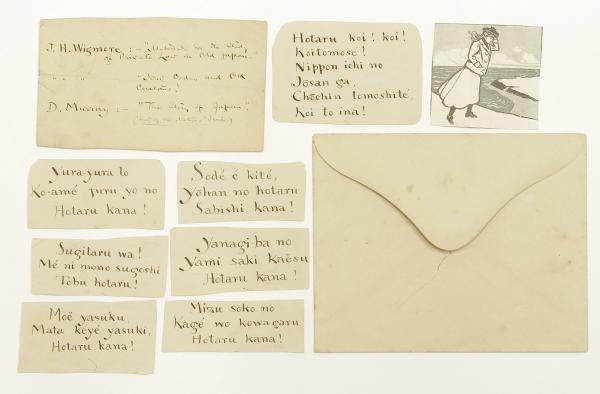 J. H. Wigmore :- "Materials for the Study
of Private Law in Old Japan."
" " " "New Codes and Old
Customs."
D. Murray :- "The Story of Japan".
Hotaru, koi! koi!
Koitomosé!
Nippon ichi no
Jōsan ga,
Chōchin tomoshité,
Koi to ina!
Yura-yura to
Ko-amé furu yo no
Hotaru kana!
Sodé é kité,
Yōhan no hotaru
Sabishi kana!
Sugitaru wa!
Mé ni mono sugoshi
Tobu hotaru!
Yanagi-ba no
Yami saki kaësu
Hotaru kana!
Moë yasuku,
Mata kéyé yasuki,
Hotaru kana!
Mizu soko no
Kagé wo kowagaru
Hotaru kana!